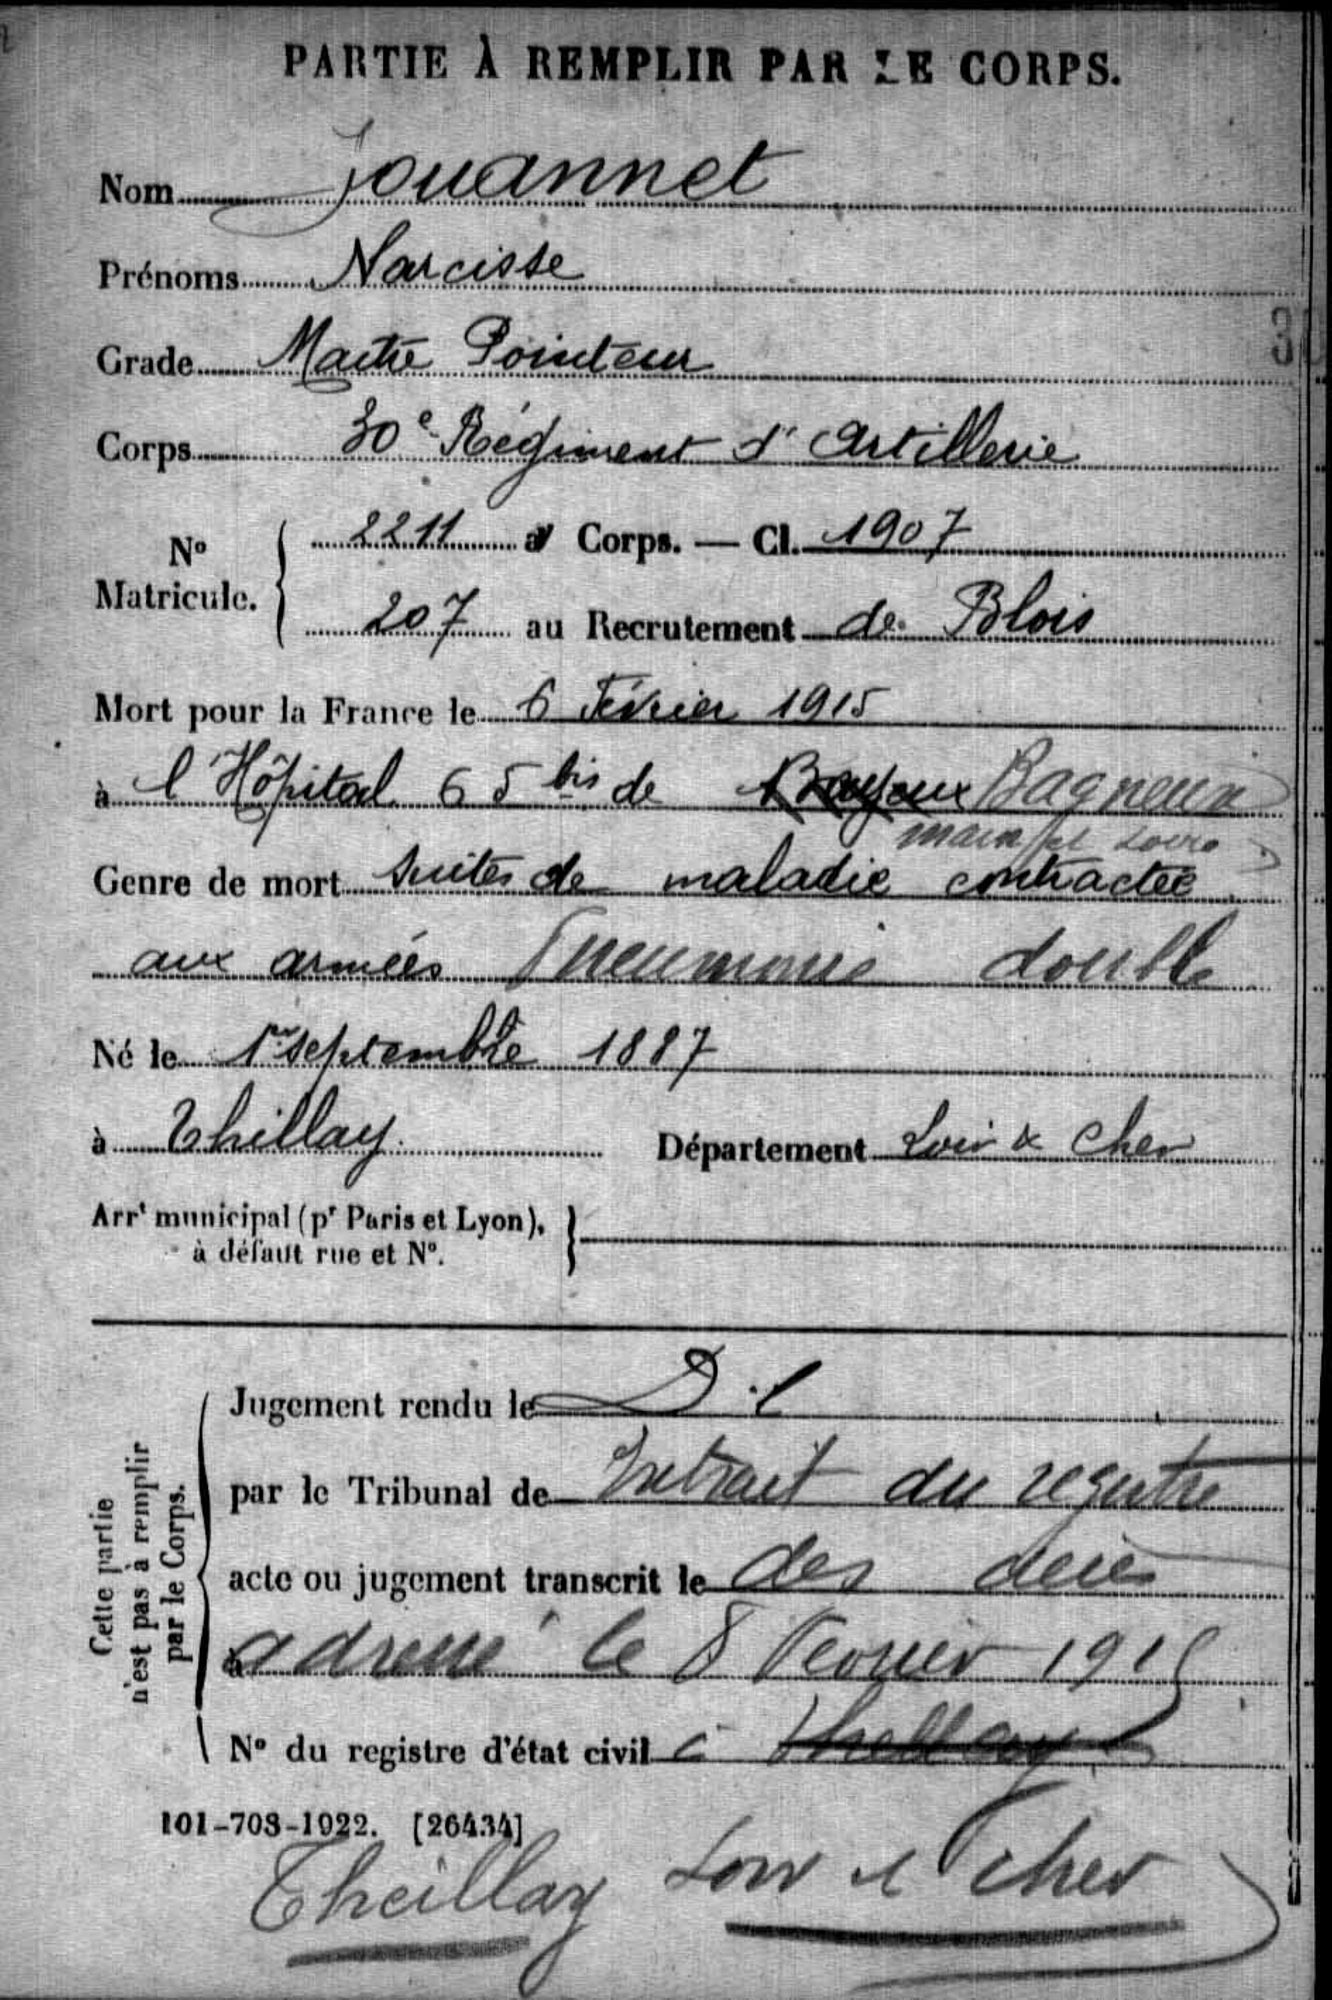 PARTIE À REMPLIR PAR LE CORPS.
Nom Jouannet
Prénoms Narcisse
Grade Maitre Pointeur
Corps 30e Régiment d'Artillerie
No Matricule. 2211 au Corps. — Cl. 1907
207 au Recrutement de Blois
Mort pour la France le 6 Février 1915
à l'Hôpital 65 bis de Bayeux Bagneux
Maine et Loire
Genre de mort suites de maladie contractée
aux armées Pneumonie double
Né le 1er septembre 1887
à Thillay Département Loir & Cher
Arrt municipal (pr Paris et Lyon),
à défaut rue et No.
Cette partie
n'est pas à remplir
par le Corps.
Jugement rendu le D.C
par le Tribunal de Extrait du registre
acte ou jugement transcrit le des décès
à adressé le 8 Février 1915
No du registre d'état civil à Thellay
101-708-1922. [26434]
Theillay Loir et Cher